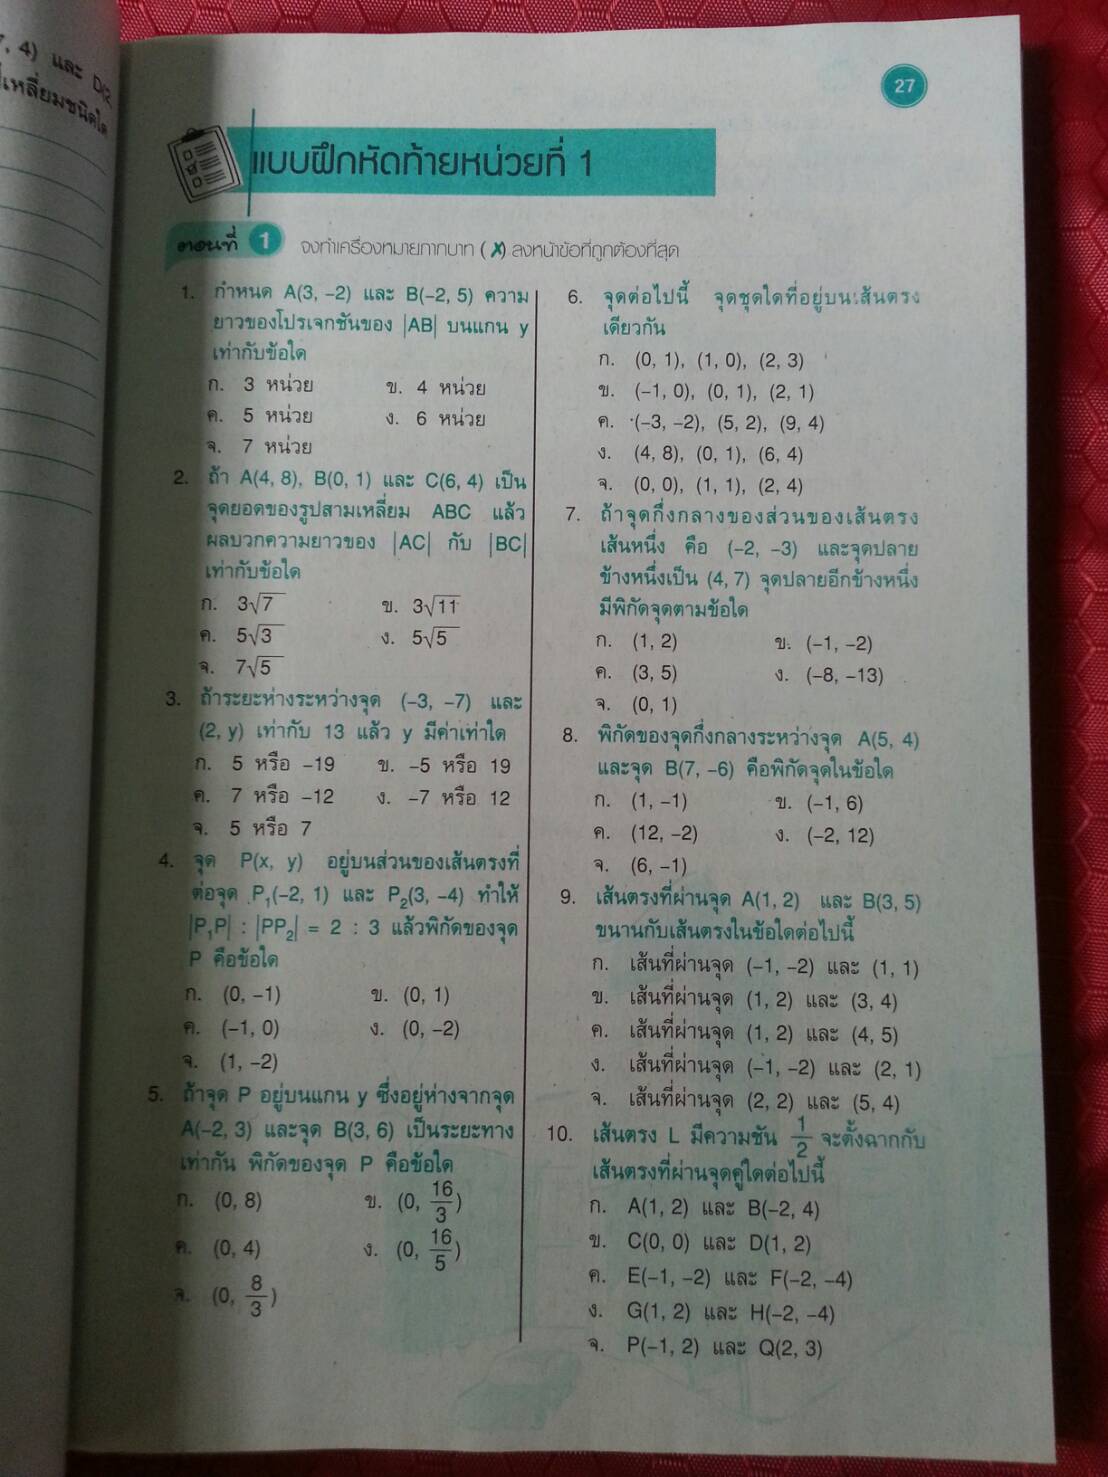 7, 4) และ D(2,
เหลี่ยมชนิดใด
27
แบบฝึกหัดท้ายหน่วยที่ 1
ตอนที่ 1 จงทำเครื่องหมายกากบาท (✗) ลงหน้าข้อที่ถูกต้องที่สุด
1. กำหนด A(3, –2) และ B(–2, 5) ความ
ยาวของโปรเจกชันของ |AB| บนแกน y
เท่ากับข้อใด
ก. 3 หน่วย ข. 4 หน่วย
ค. 5 หน่วย ง. 6 หน่วย
จ. 7 หน่วย
2. ถ้า A(4, 8), B(0, 1) และ C(6, 4) เป็น
จุดยอดของรูปสามเหลี่ยม ABC แล้ว
ผลบวกความยาวของ |AC| กับ |BC|
เท่ากับข้อใด
ก. 3√7 ข. 3√11
ค. 5√3 ง. 5√5
จ. 7√5
3. ถ้าระยะห่างระหว่างจุด (–3, –7) และ
(2, y) เท่ากับ 13 แล้ว y มีค่าเท่าใด
ก. 5 หรือ –19 ข. –5 หรือ 19
ค. 7 หรือ –12 ง. –7 หรือ 12
จ. 5 หรือ 7
4. จุด P(x, y) อยู่บนส่วนของเส้นตรงที่
ต่อจุด P₁(–2, 1) และ P₂(3, –4) ทำให้
|P₁P| : |PP₂| = 2 : 3 แล้วพิกัดของจุด
P คือข้อใด
ก. (0, –1) ข. (0, 1)
ค. (–1, 0) ง. (0, –2)
จ. (1, –2)
5. ถ้าจุด P อยู่บนแกน y ซึ่งอยู่ห่างจากจุด
A(–2, 3) และจุด B(3, 6) เป็นระยะทาง
เท่ากัน พิกัดของจุด P คือข้อใด
ก. (0, 8) ข. (0, 16/3)
ค. (0, 4) ง. (0, 16/5)
จ. (0, 8/3)
6. จุดต่อไปนี้ จุดชุดใดที่อยู่บนเส้นตรง
เดียวกัน
ก. (0, 1), (1, 0), (2, 3)
ข. (–1, 0), (0, 1), (2, 1)
ค. (–3, –2), (5, 2), (9, 4)
ง. (4, 8), (0, 1), (6, 4)
จ. (0, 0), (1, 1), (2, 4)
7. ถ้าจุดกึ่งกลางของส่วนของเส้นตรง
เส้นหนึ่ง คือ (–2, –3) และจุดปลาย
ข้างหนึ่งเป็น (4, 7) จุดปลายอีกข้างหนึ่ง
มีพิกัดจุดตามข้อใด
ก. (1, 2) ข. (–1, –2)
ค. (3, 5) ง. (–8, –13)
จ. (0, 1)
8. พิกัดของจุดกึ่งกลางระหว่างจุด A(5, 4)
และจุด B(7, –6) คือพิกัดจุดในข้อใด
ก. (1, –1) ข. (–1, 6)
ค. (12, –2) ง. (–2, 12)
จ. (6, –1)
9. เส้นตรงที่ผ่านจุด A(1, 2) และ B(3, 5)
ขนานกับเส้นตรงในข้อใดต่อไปนี้
ก. เส้นที่ผ่านจุด (–1, –2) และ (1, 1)
ข. เส้นที่ผ่านจุด (1, 2) และ (3, 4)
ค. เส้นที่ผ่านจุด (1, 2) และ (4, 5)
ง. เส้นที่ผ่านจุด (–1, –2) และ (2, 1)
จ. เส้นที่ผ่านจุด (2, 2) และ (5, 4)
10. เส้นตรง L มีความชัน 1/2 จะตั้งฉากกับ
เส้นตรงที่ผ่านจุดคู่ใดต่อไปนี้
ก. A(1, 2) และ B(–2, 4)
ข. C(0, 0) และ D(1, 2)
ค. E(–1, –2) และ F(–2, –4)
ง. G(1, 2) และ H(–2, –4)
จ. P(–1, 2) และ Q(2, 3)